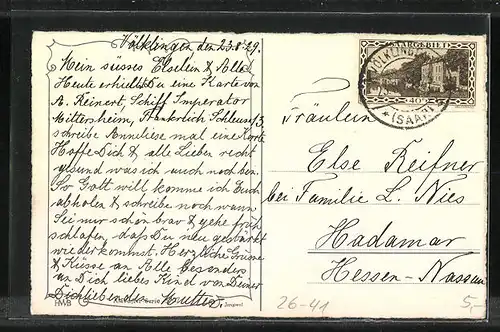 Völklingen den 23.8.29.
Mein süsses Elselein & Alle
Heute erhieltst Du eine Karte von
A. Reinert, Schiff Imperator
Mittersheim, Frankreich Schleuse 13,
schreibe Anneliese mal eine Karte
Hoffe Dich & alle Lieben recht
gesund was ich auch noch bin.
So Gott will komme ich Euch
abholen & schreibe noch wann
Sei nur schön brav & gehe früh
schlafen, daß Du neu gestärkt
wiederkommst. Herzliche Grüsse
& Küsse an Alle besonders
an Dich liebes Kind von Deiner
Dichliebenden Mutter.
HWB
SAARGEBIET
40
(SAAR)
Fräulein
Else Reifner
bei Familie L. Nies
Hadamar
Hessen-Nassau
26-41
5,-